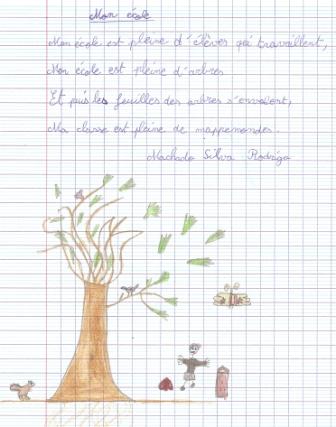 Mon école
Mon école est pleine d'élèves qui travaillent,
Mon école est pleine d'arbres
Et puis les feuilles des arbres s'envolent,
Ma classe est pleine de mappemondes.
Machado Silva Rodrigo